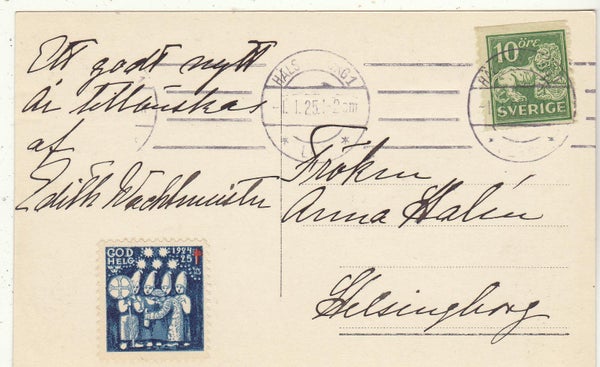 Ett godt nytt
år tillönskas
af
Edith Wachtmeister
HÄLSINGBORG 1
1.1.25.1-2 em
10 ÖRE
SVERIGE
Fröken
Anna Halén
Helsingborg
GOD
HELG
1924
25